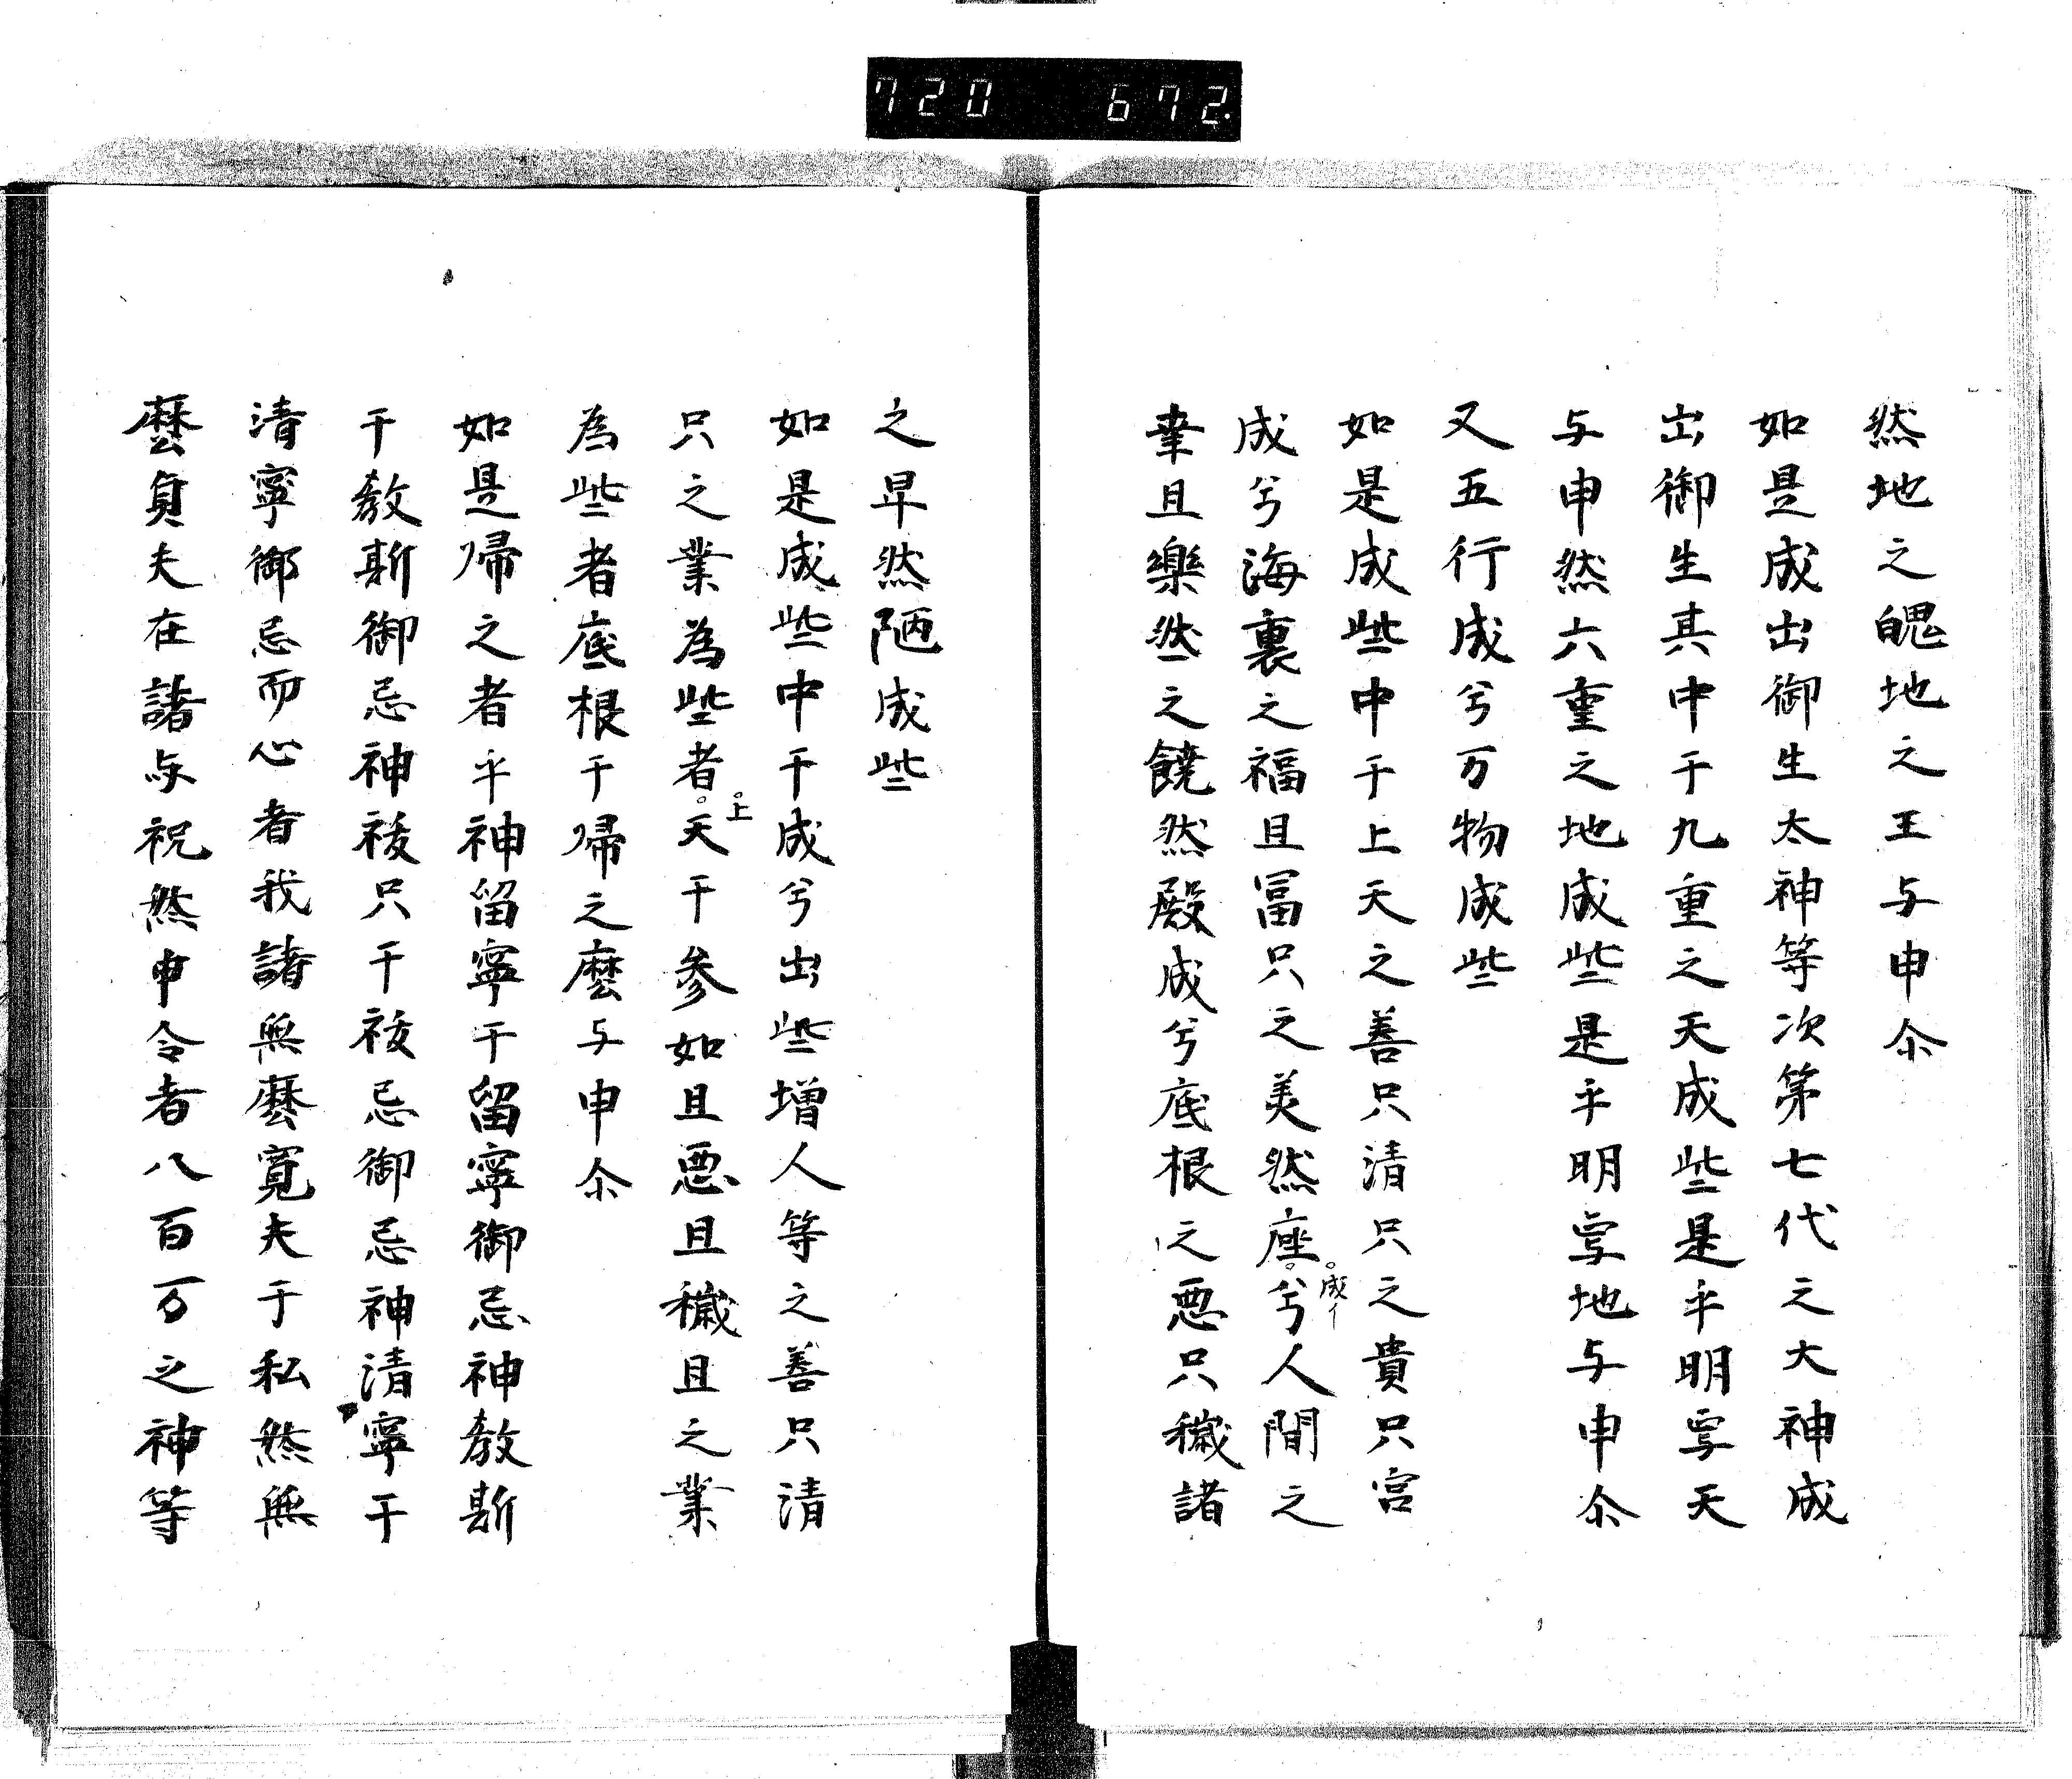 720 672.
然地之魄地之王与申尒
如是成出御生太神等次第七代之大神成
出御生其中于九重之天成些是乎明宇天
与申然六重之地成些是乎明宇地与申尒
又五行成兮万物成些
如是成些中于上天之善只清只之貴只宮
成兮海裏之福且冨只之美然座。兮人間之
。成イ
聿且樂然之饒然殿成兮底根之悪只穢諸
之早然陋成些
如是成些中于成兮出些増人等之善只清
只之業為些者。天于参如且悪且穢且之業
。上
為些者底根于帰之麼与申尒
如是帰之者乎神留寧于留寧御忌神教斯
于教斯御忌神祓只于祓忌御忌神清寧于
清寧御忌而心者我諸無麼寛夫于私然無
麼負夫在諸与祝然申令者八百万之神等